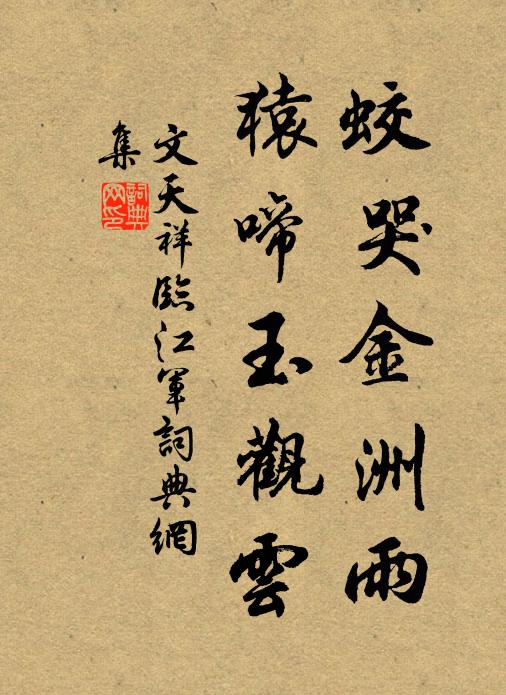 蛟哭金洲雨
猿啼玉觀雲
文天祥臨江軍詞典網
集
詞典网印